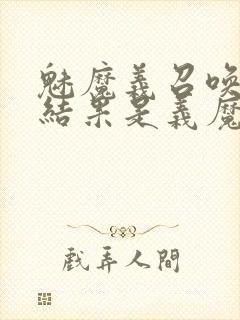 魅魔義召喚
結果是義魔
戲弄人間